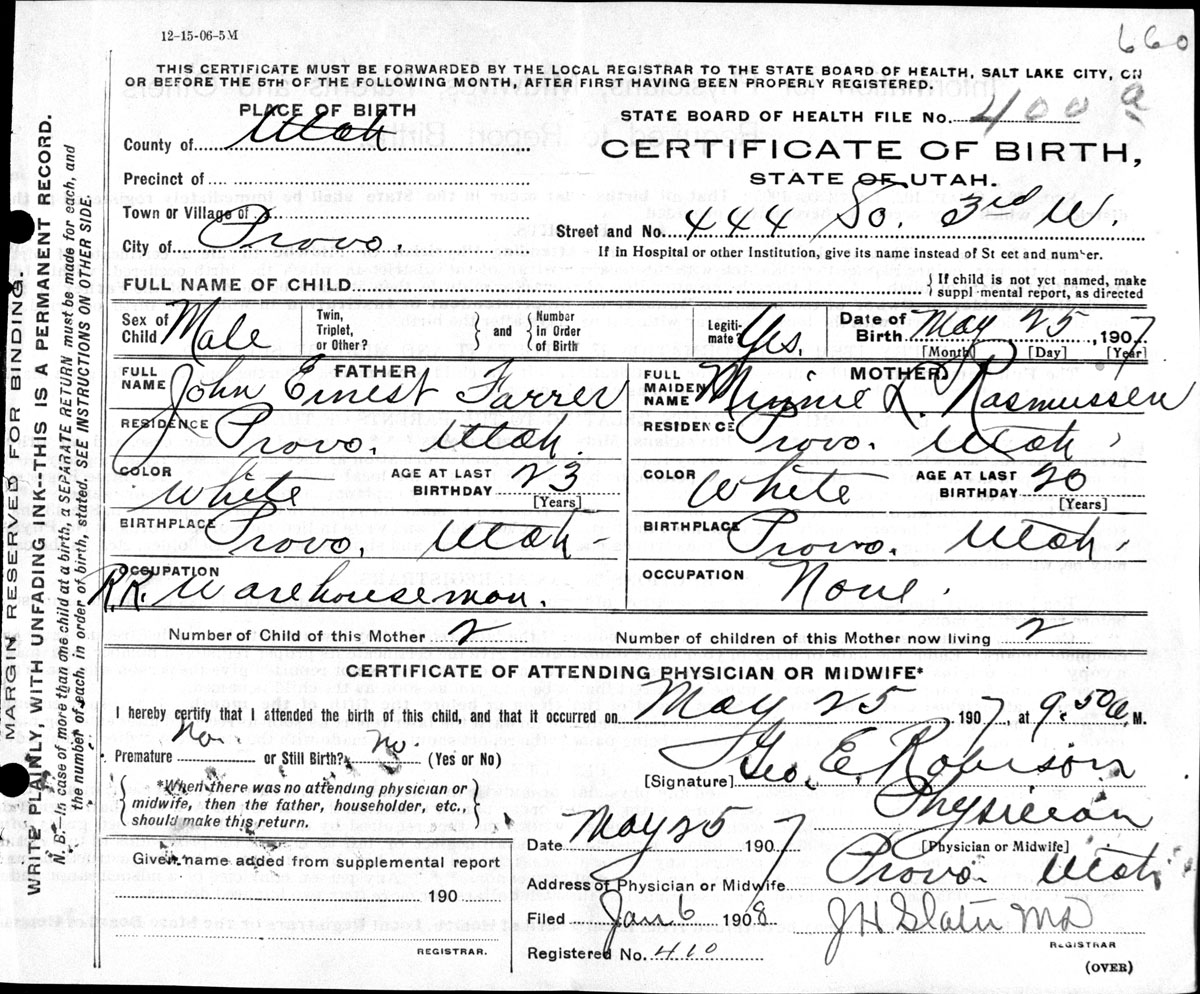 12-15-06-5M
660
THIS CERTIFICATE MUST BE FORWARDED BY THE LOCAL REGISTRAR TO THE STATE BOARD OF HEALTH, SALT LAKE CITY, ON
OR BEFORE THE 5TH OF THE FOLLOWING MONTH, AFTER FIRST HAVING BEEN PROPERLY REGISTERED.
PLACE OF BIRTH
County of Utah
Precinct of
Town or Village of
City of Provo.
STATE BOARD OF HEALTH FILE No. 400 a
CERTIFICATE OF BIRTH,
STATE OF UTAH.
Street and No. 444 So. 3rd W.
If in Hospital or other Institution, give its name instead of St eet and number.
FULL NAME OF CHILD
If child is not yet named, make
suppl mental report, as directed
Sex of Child Male
Twin, Triplet, or Other?
and
Number in Order of Birth
Legiti-mate? Yes.
Date of Birth May 25, 1907
[Month] [Day] [Year]
FATHER
FULL NAME John Ernest Farrer
RESIDENCE Provo. Utah.
COLOR White AGE AT LAST BIRTHDAY 23
[Years]
BIRTHPLACE Provo, Utah-
OCCUPATION
R.R. Warehouseman.
MOTHER
FULL MAIDEN NAME Minnie L. Rasmussen
RESIDENCE Provo. Utah
COLOR White AGE AT LAST BIRTHDAY 20
[Years]
BIRTHPLACE Provo. Utah.
OCCUPATION None.
Number of Child of this Mother 2 Number of children of this Mother now living 2
CERTIFICATE OF ATTENDING PHYSICIAN OR MIDWIFE*
I hereby certify that I attended the birth of this child, and that it occurred on May 25 1907, at 9:50 a. M.
Premature No. or Still Birth? No. (Yes or No)
*When there was no attending physician or
midwife, then the father, householder, etc.,
should make this return.
[Signature] Geo. E. Robison
Physician
[Physician or Midwife]
Date May 25 1907
Address of Physician or Midwife Provo. Utah
Filed Jan 6 1908
J H Slater MD
REGISTRAR
Registered No. 410
(OVER)
Given name added from supplemental report
190
REGISTRAR.
MARGIN RESERVED FOR BINDING
WRITE PLAINLY, WITH UNFADING INK--THIS IS A PERMANENT RECORD.
N. B.—In case of more than one child at a birth, a SEPARATE RETURN must be made for each, and
the number of each, in order of birth, stated. SEE INSTRUCTIONS ON OTHER SIDE.